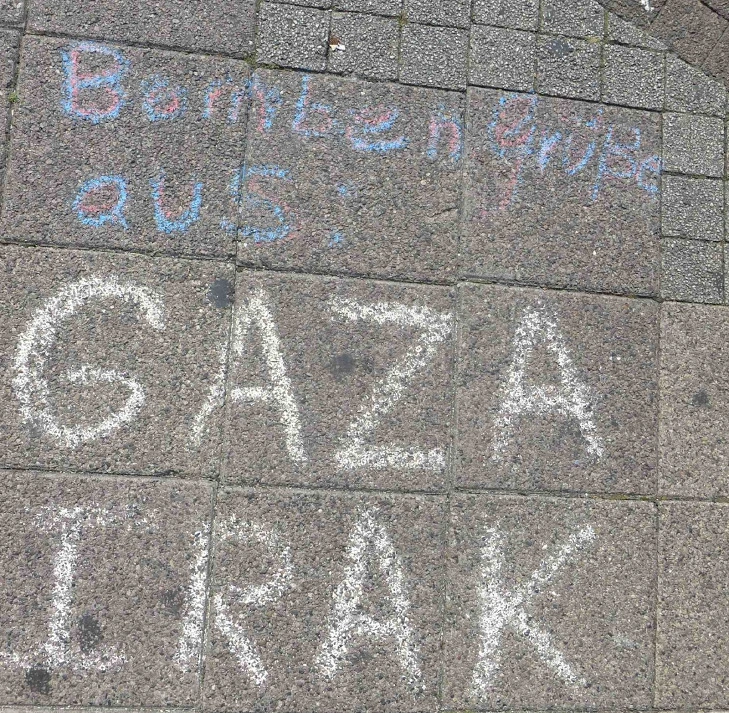 Bomben grüße
aus:
GAZA
IRAK